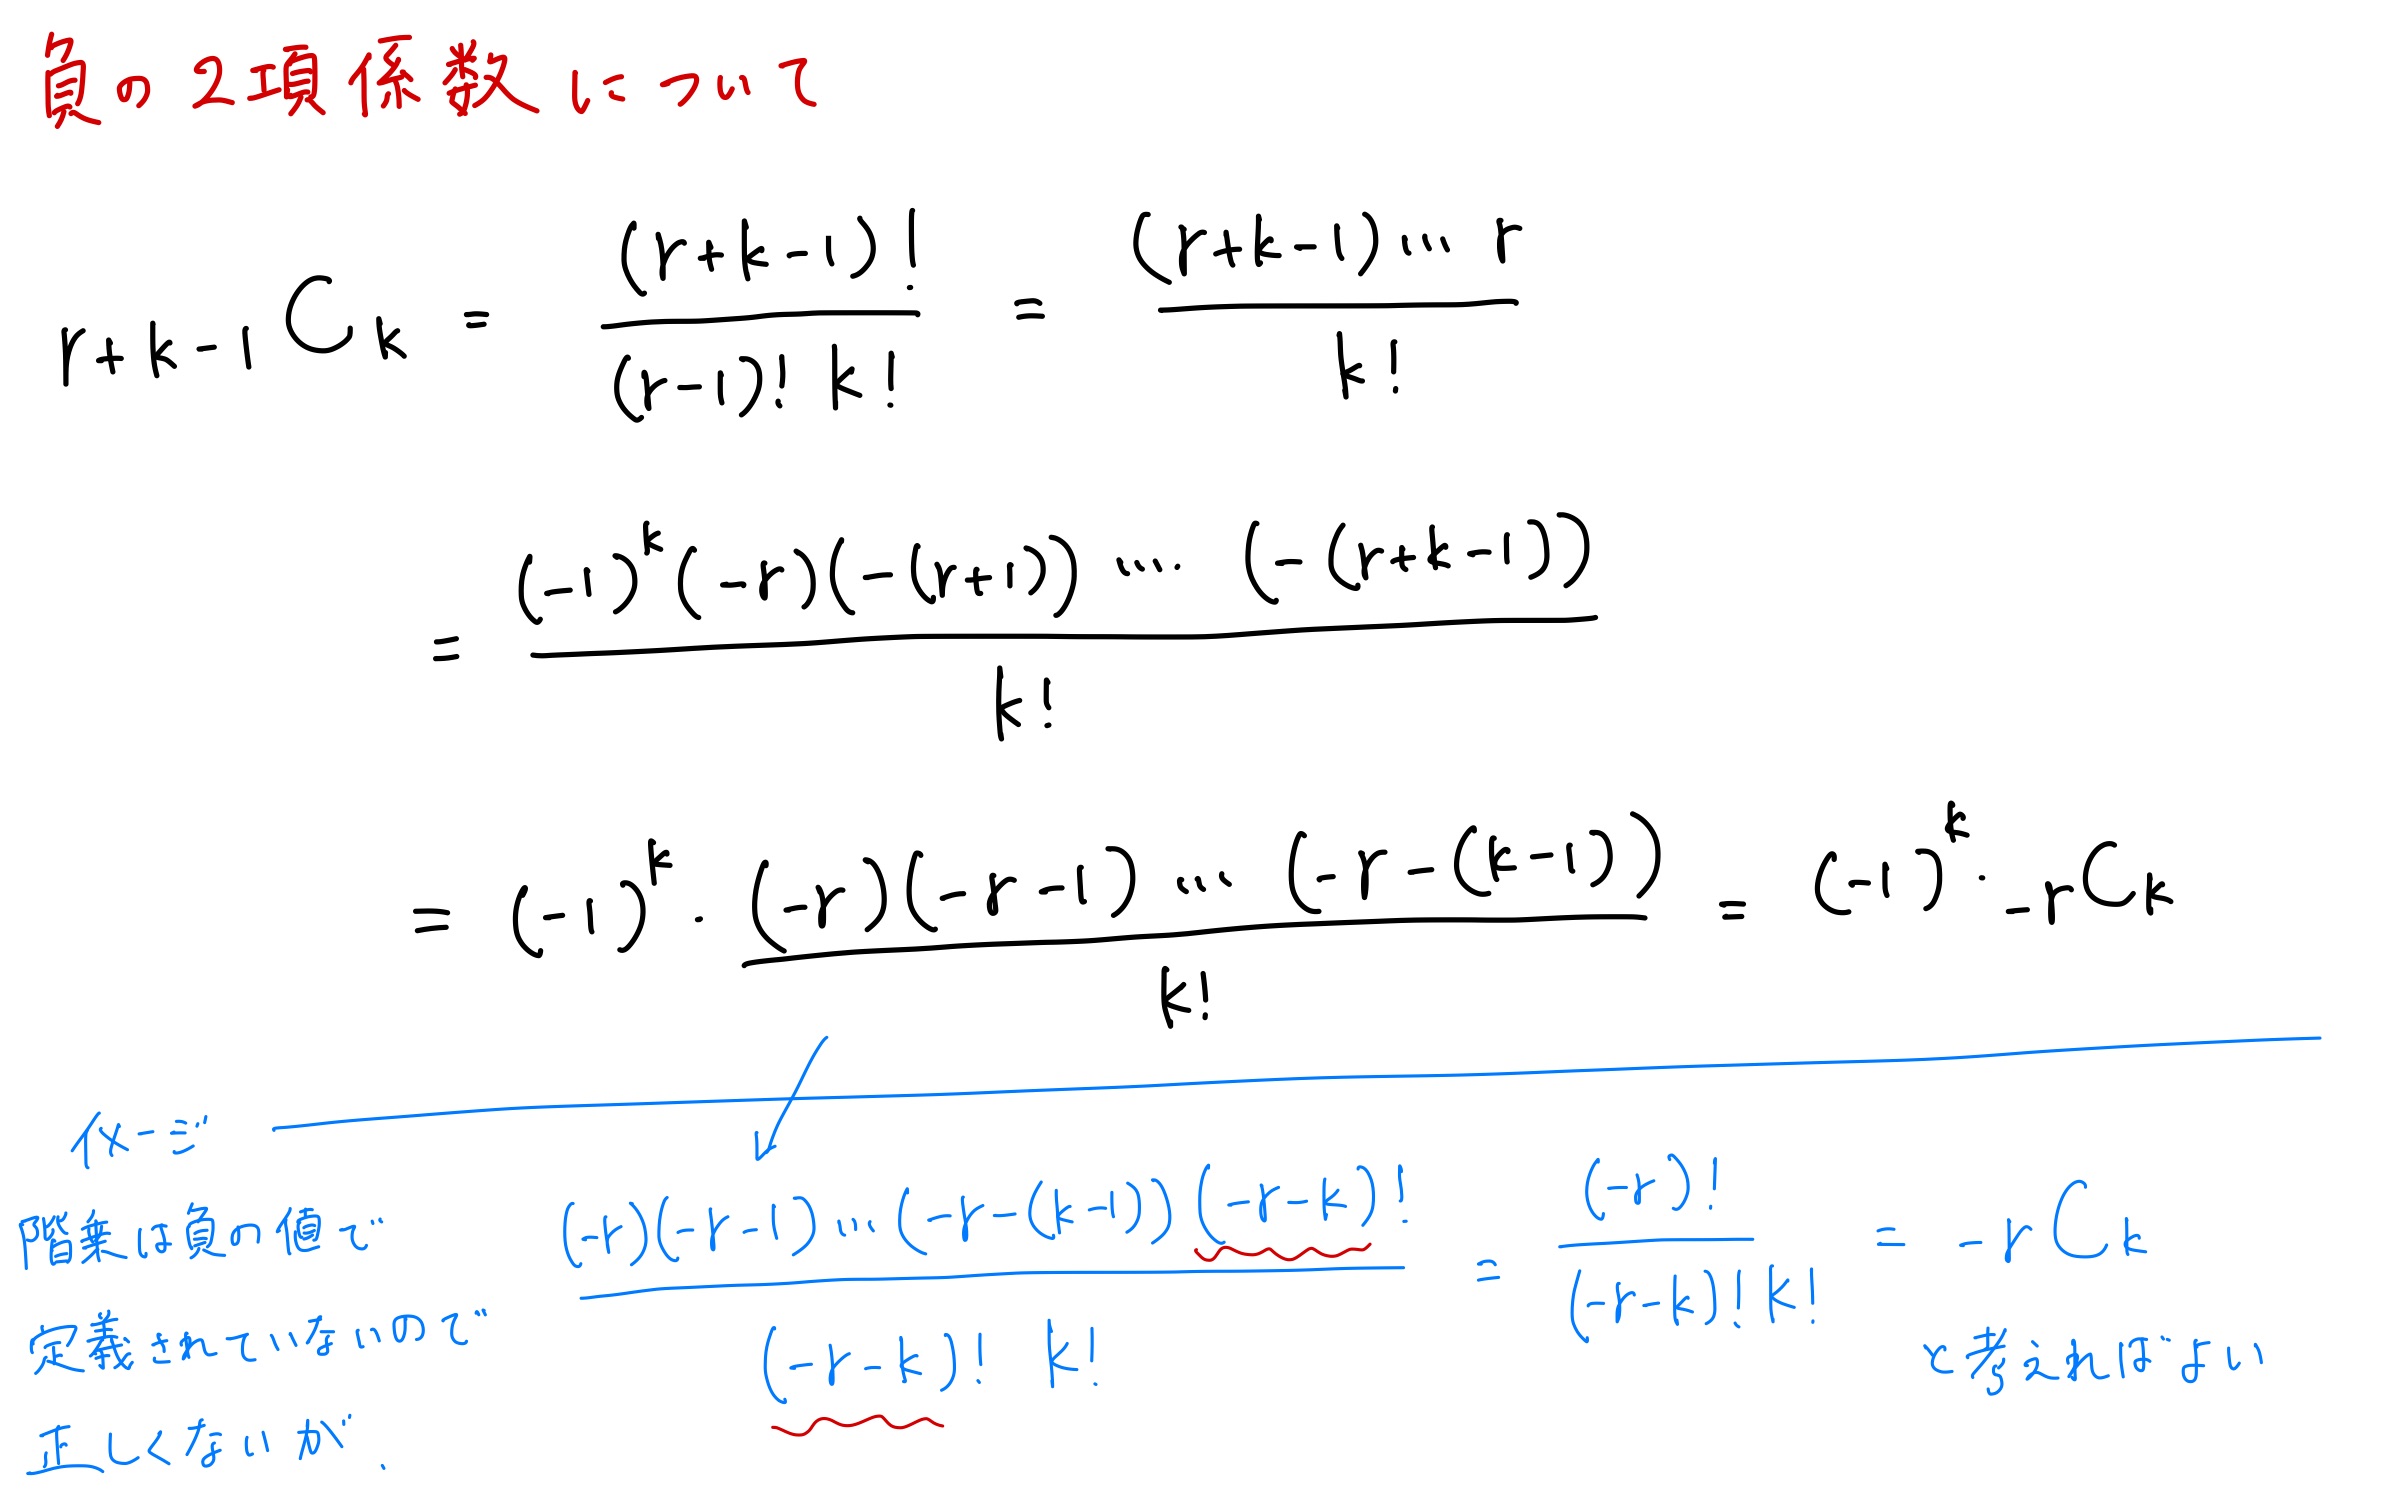 負の2項係数について
r+k-1 C k = (r+k-1)! / (r-1)! k! = (r+k-1)… r / k!
= (-1)^k (-r)(-(r+1)) …. (-(r+k-1)) / k!
= (-1)^k ・ (-r)(-r-1) … (-r-(k-1)) / k! = (-1)^k ・ -r C k
イメージ
階乗は負の値で
定義されていないので
正しくないが.
(-r)(-r-1) … (-r-(k-1)) (-r-k)! / (-r-k)! k! = (-r)! / (-r-k)! k! = -r C k
と考えればよい